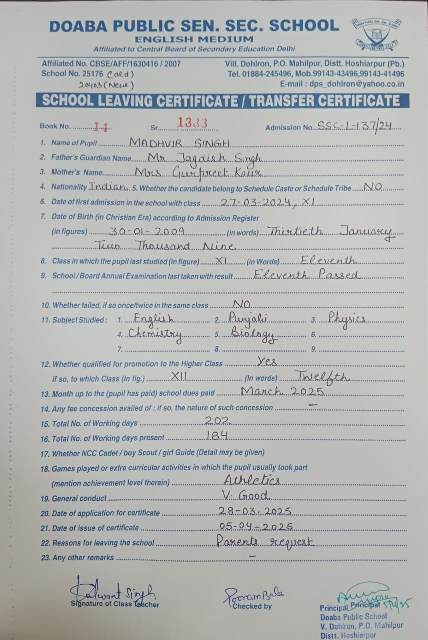 DOABA PUBLIC SEN. SEC. SCHOOL
ENGLISH MEDIUM
Affiliated to Central Board of Secondary Education Delhi
Affiliated No. CBSE/AFF/1630416 / 2007 Vill. Dohlron, P.O. Mahilpur, Distt. Hoshiarpur (Pb.)
School No. 25176 (old) Tel. 01884-245496, Mob.99143-43496,99143-41496
20403 (New) E-mail : dps_dohlron@yahoo.co.in
SCHOOL LEAVING CERTIFICATE / TRANSFER CERTIFICATE
Book No. 14 Sr. 1333 Admission No. SSC-L-137/24
1. Name of Pupil MADHVIR SINGH
2. Father's Guardian Name Mr Jagdish Singh
3. Mother's Name Mrs Gurpreet Kaur
4. Nationality Indian 5. Whether the candidate belong to Schedule Caste or Schedule Tribe NO
6. Date of first admission in the school with class 27-03-2024, XI
7. Date of Birth (in Christian Era) according to Admission Register
(in figures) 30-01-2009 (in words) Thirtieth January
Two Thousand Nine
8. Class in which the pupil last studied (in figure) XI (in Words) Eleventh
9. School / Board Annual Examination last taken with result Eleventh Passed
10. Whether failed, if so once/twice in the same class NO
11. Subject Studied : 1. English 2. Punjabi 3. Physics
4. Chemistry 5. Biology 6.
7. 8. 9.
12. Whether qualified for promotion to the Higher Class Yes
if so, to which Class (in fig.) XII (in words) Twelfth
13. Month up to the (pupil has paid) school dues paid March 2025
14. Any fee concession availed of : if so, the nature of such concession –
15. Total No. of Working days 202
16. Total No. of Working days present 184
17. Whether NCC Cadet / boy Scout / girl Guide (Detail may be given)
18. Games played or extra curricular activities in which the pupil usually took part
(mention achievement level therein) Athletics
19. General conduct V. Good
20. Date of application for certificate 28-03-2025
21. Date of issue of certificate 05-04-2025
22. Reasons for leaving the school Parents request
23. Any other remarks –
Kulwant Singh PoonamBala
Signature of Class Teacher Checked by Principal Principal
Doaba Public School
V. Dohlron, P.O. Mahilpur
Distt. Hoshiarpur